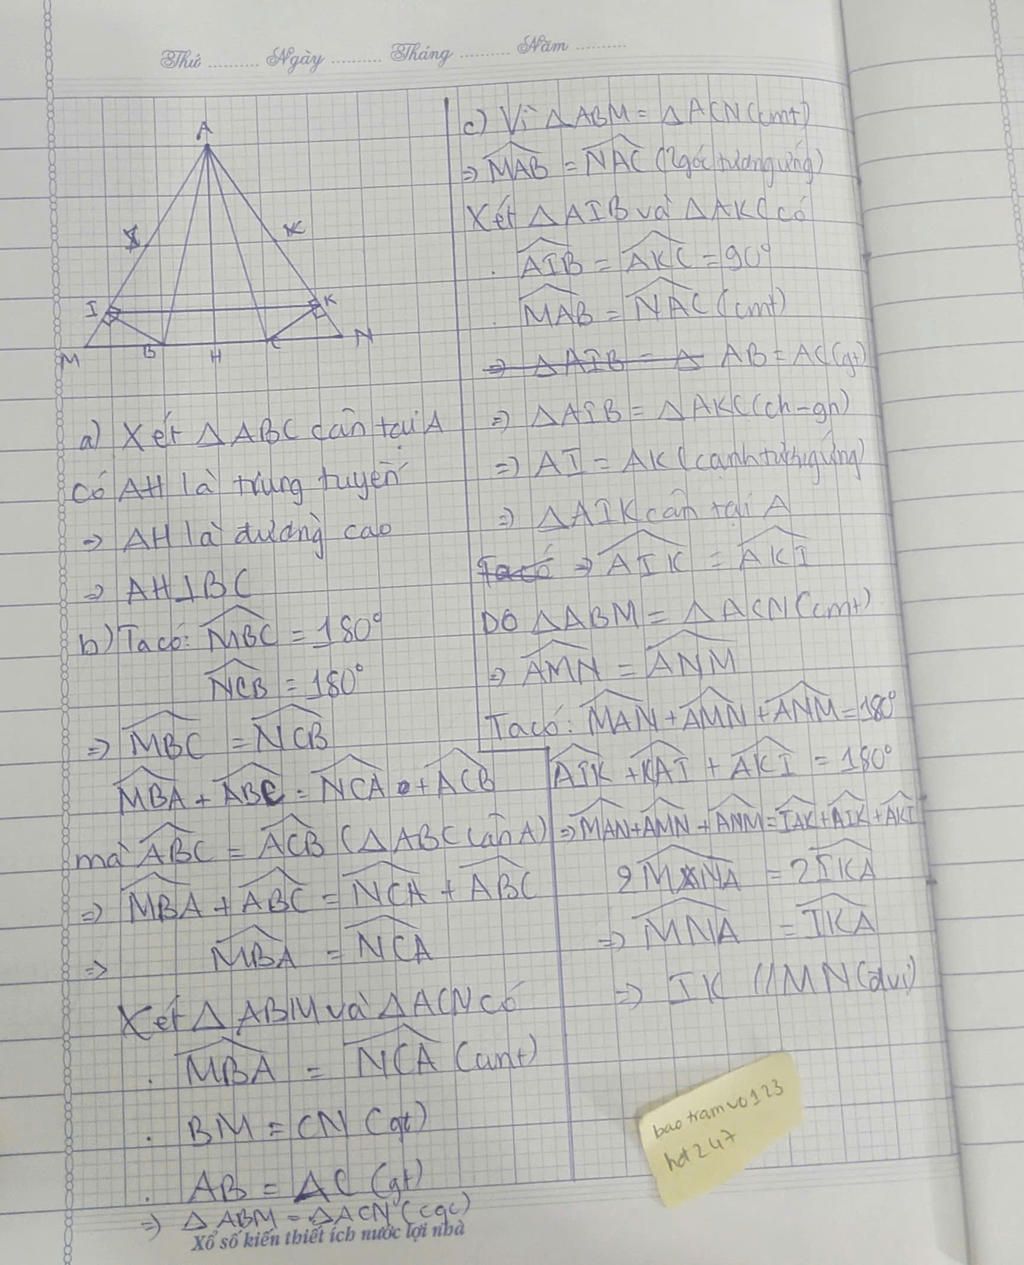 Thứ .......... Ngày .......... Tháng .......... Năm ..........
A
K
I
K
M
B
H
C
N
a) Xét △ABC cân tại A
Có AH là trung tuyến
⇒ AH là đường cao
⇒ AH⊥BC
b) Ta có: \widehat{MBC} = 180°
\widehat{NCB} = 180°
⇒ \widehat{MBC} = \widehat{NCB}
\widehat{MBA} + \widehat{ABC} = \widehat{NCA} + \widehat{ACB}
mà \widehat{ABC} = \widehat{ACB} (△ABC cân A)
⇒ \widehat{MBA} + \widehat{ABC} = \widehat{NCA} + \widehat{ABC}
⇒ \widehat{MBA} = \widehat{NCA}
Xét △ABM và △ACN có
. \widehat{MBA} = \widehat{NCA} (cmt)
. BM = CN (gt)
. AB = AC (gt)
⇒ △ABM = △ACN (cgc)
c) Vì △ABM = △ACN (cmt)
⇒ \widehat{MAB} = \widehat{NAC} (2 góc tương ứng)
Xét △AIB và △AKC có
. \widehat{AIB} = \widehat{AKC} = 90°
. \widehat{MAB} = \widehat{NAC} (cmt)
⇒ △AIB = △ AB = AC (gt)
⇒ △AIB = △AKC (ch-gn)
⇒ AI = AK (cạnh tương ứng)
⇒ △AIK cân tại A
Ta có ⇒ \widehat{AIK} = \widehat{AKI}
Do △ABM = △ACN (cmt)
⇒ \widehat{AMN} = \widehat{ANM}
Ta có: \widehat{MAN} + \widehat{AMN} + \widehat{ANM} = 180°
\widehat{AIK} + \widehat{KAI} + \widehat{AKI} = 180°
⇒ \widehat{MAN} + \widehat{AMN} + \widehat{ANM} = \widehat{IAK} + \widehat{AIK} + \widehat{AKI}
2\widehat{MNA} = 2\widehat{IKA}
⇒ \widehat{MNA} = \widehat{IKA}
⇒ IK // MN (đvị)
baotramvo123
hd247
Xổ số kiến thiết ích nước lợi nhà